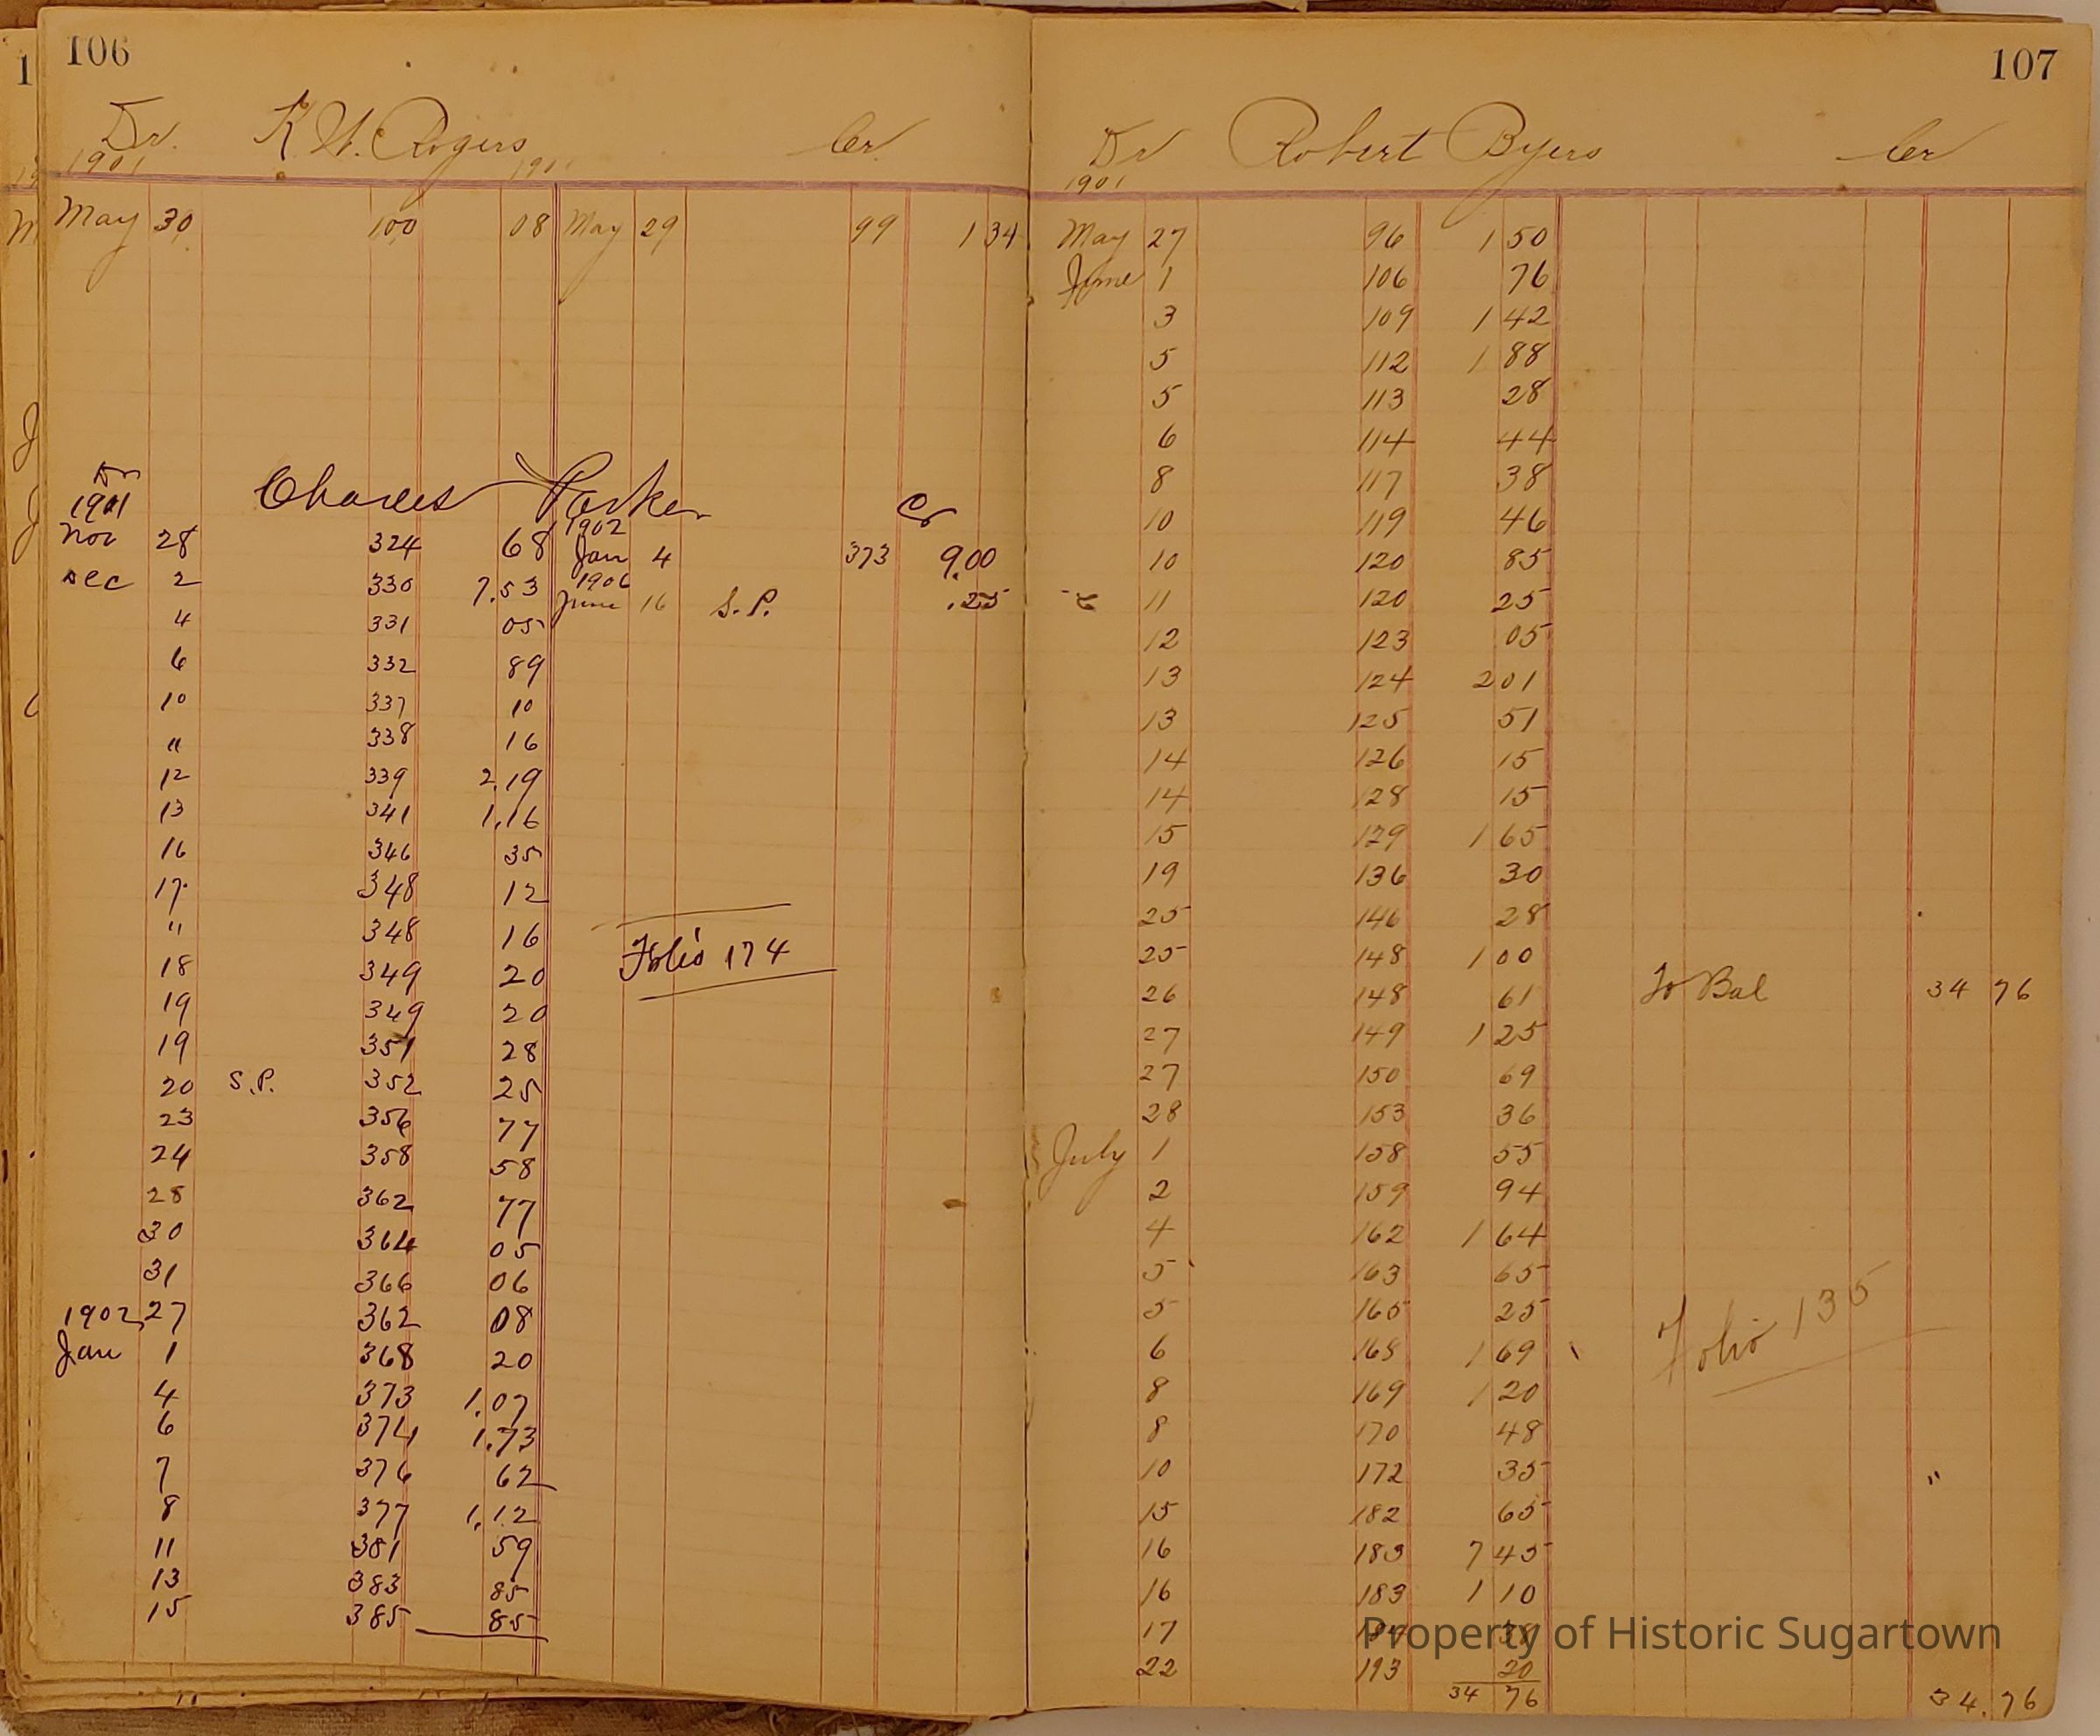 106
Dr. K. W. Rogers Cr.
1901 1901
May 30 100 08 May 29 99 1 34
Dr Charles Parker Cr
1901
Nov 28 324 68 1902 Jan 4 373 9.00
Dec 2 330 7.53 1906 June 16 S.P. .25
4 331 05
6 332 89
10 337 10
" 338 16
12 339 2.19
13 341 1.16
16 346 35
17 348 12
" 348 16
Folio 174
18 349 20
19 349 20
19 351 28
20 S.P. 352 25
23 356 77
24 358 58
28 362 77
30 364 05
31 366 06
1902 27 362 08
Jan 1 368 20
4 373 1.07
6 374 1.73
7 376 62
8 377 1.12
11 381 59
13 383 85
15 385 85
107
Dr Robert Byers Cr
1901
May 27 96 1 50
June 1 106 76
3 109 1 42
5 112 1 88
5 113 28
6 114 44
8 117 38
10 119 46
10 120 85
11 120 25
12 123 05
13 124 2 01
13 125 51
14 126 15
14 128 15
15 129 1 65
19 136 30
25 146 28
25 148 1 00
26 148 61 To Bal 34 76
27 149 1 25
27 150 69
28 153 36
July 1 158 55
2 159 94
4 162 1 64
5 163 65
5 165 25
Folio 135
6 168 1 69
8 169 1 20
8 170 48
10 172 35 "
15 182 65
16 183 7 45
16 183 1 10
17 38
22 193 20
34 76 34.76
Property of Historic Sugartown